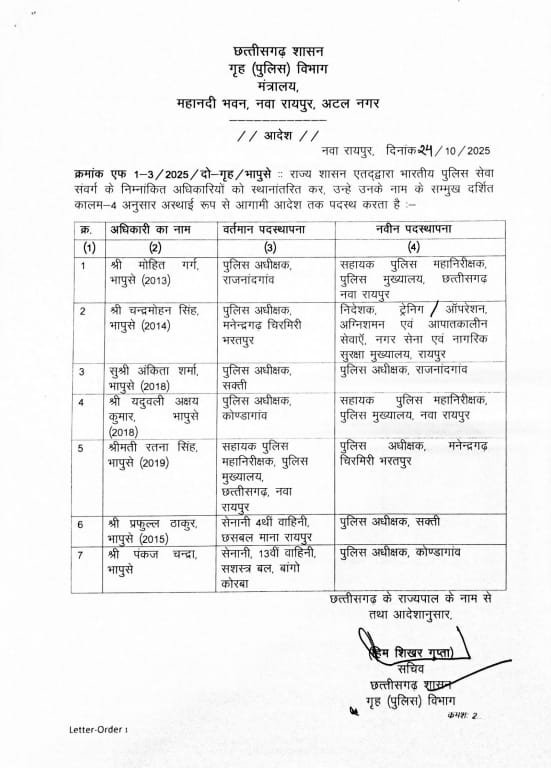 छत्तीसगढ़ शासन
गृह (पुलिस) विभाग
मंत्रालय,
महानदी भवन, नवा रायपुर, अटल नगर
// आदेश //
नवा रायपुर, दिनांक 24/10/2025
क्रमांक एफ 1-3/2025/दो-गृह/भापुसे :: राज्य शासन एतद्द्वारा भारतीय पुलिस सेवा
संवर्ग के निम्नांकित अधिकारियों को स्थानांतरित कर, उन्हे उनके नाम के सम्मुख दर्शित
कालम-4 अनुसार अस्थाई रूप से आगामी आदेश तक पदस्थ करता है :-
क्र. अधिकारी का नाम वर्तमान पदस्थापना नवीन पदस्थापना
(1) (2) (3) (4)
1 श्री मोहित गर्ग, पुलिस अधीक्षक, सहायक पुलिस महानिरीक्षक,
भापुसे (2013) राजनांदगांव पुलिस मुख्यालय, छत्तीसगढ़
नवा रायपुर
2 श्री चन्द्रमोहन सिंह, पुलिस अधीक्षक, निदेशक, ट्रेनिग / ऑपरेशन,
भापुसे (2014) मनेन्द्रगढ़ चिरमिरी अग्निशमन एवं आपातकालीन
भरतपुर सेवाऍ, नगर सेना एवं नागरिक
सुरक्षा मुख्यालय, रायपुर
3 सुश्री अंकिता शर्मा, पुलिस अधीक्षक, पुलिस अधीक्षक, राजनांदगांव
भापुसे (2018) सक्ती
4 श्री यदुवली अक्षय पुलिस अधीक्षक, सहायक पुलिस महानिरीक्षक,
कुमार, भापुसे कोण्डागांव पुलिस मुख्यालय, नवा रायपुर
(2018)
5 श्रीमती रतना सिंह, सहायक पुलिस पुलिस अधीक्षक, मनेन्द्रगढ़
भापुसे (2019) महानिरीक्षक, पुलिस चिरमिरी भरतपुर
मुख्यालय,
छत्तीसगढ़, नवा
रायपुर
6 श्री प्रफुल्ल ठाकुर, सेनानी 4थीं वाहिनी, पुलिस अधीक्षक, सक्ती
भापुसे (2015) छसबल माना रायपुर
7 श्री पंकज चन्द्रा, सेनानी, 13वीं वाहिनी, पुलिस अधीक्षक, कोण्डागांव
भापुसे सशस्त्र बल, बांगो
कोरबा
छत्तीसगढ़ के राज्यपाल के नाम से
तथा आदेशानुसार,
(हिम शिखर गुप्ता)
सचिव
छत्तीसगढ़ शासन
गृह (पुलिस) विभाग
क्रमशः 2..
Letter-Order 1